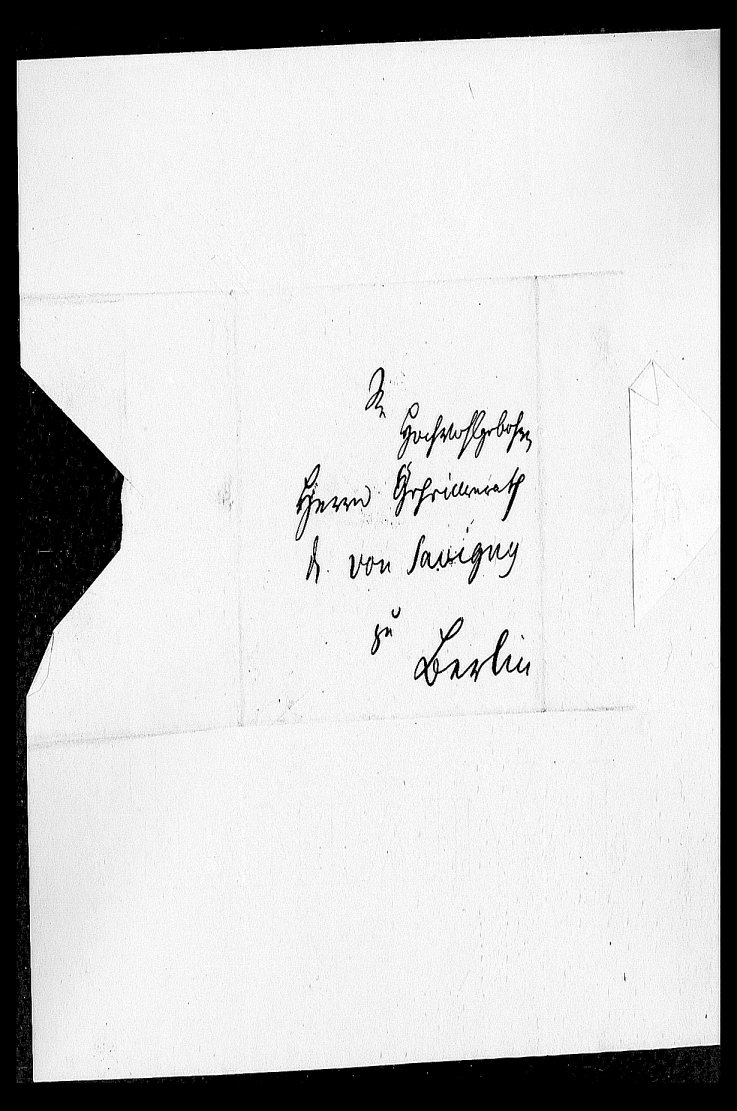 Sr
Hochwohlgebohren
Herrn Geheimerath
von Savigny
zu
Berlin